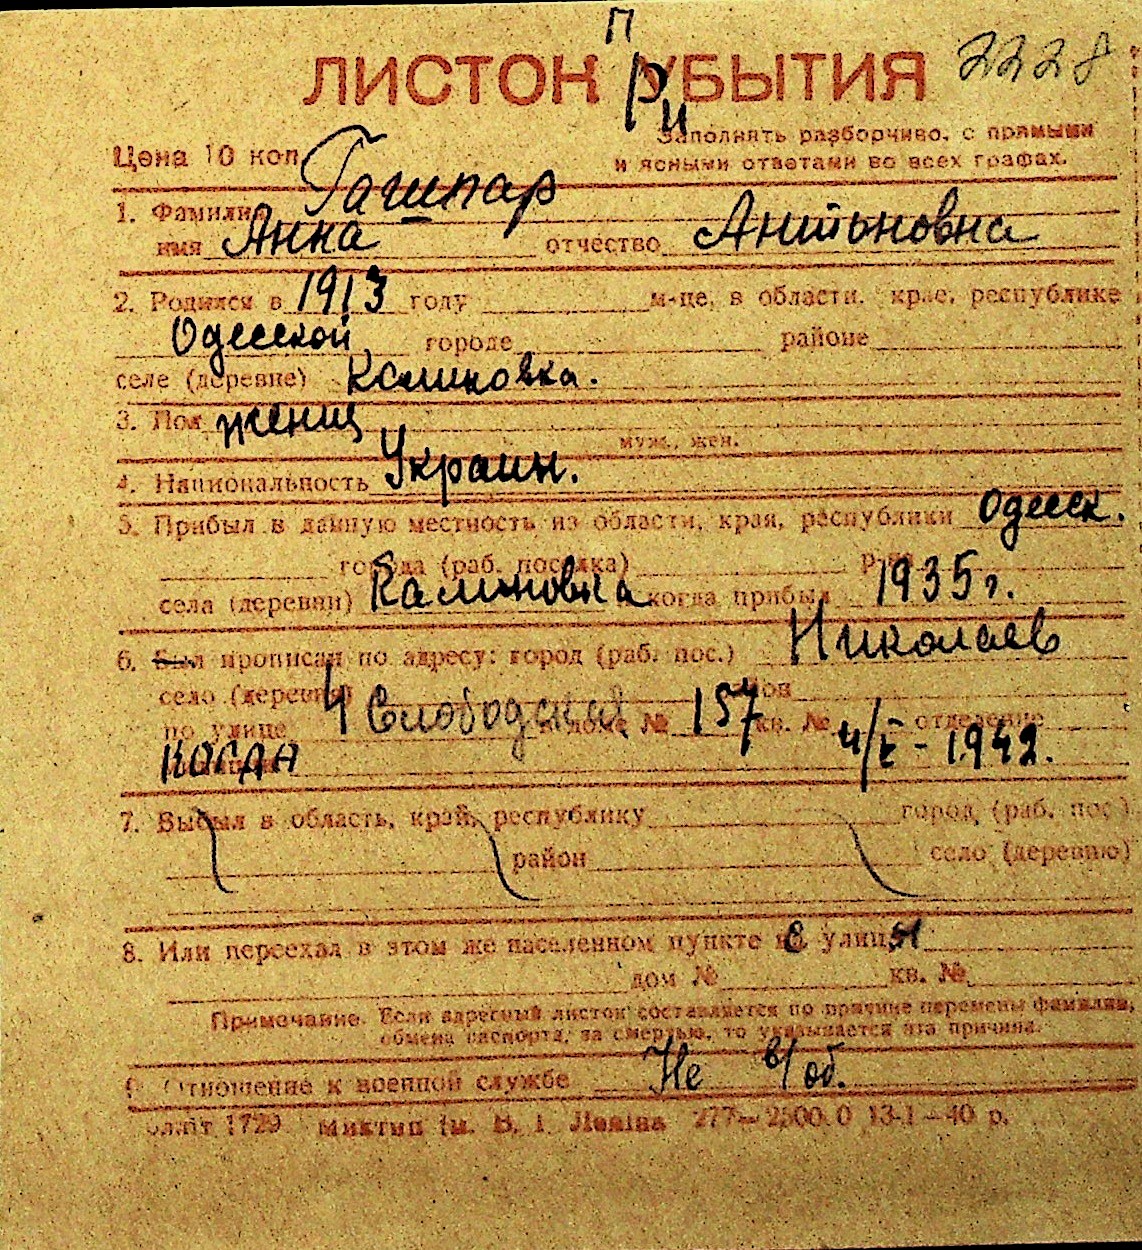 П
ЛИСТОК УБЫТИЯ 2228
ри
Цена 10 коп.
Заполнять разборчиво, с прямыми
и ясными ответами во всех графах.
1. Фамилия Гашпар
имя Анна отчество Антоновна
2. Родился в 1913 году м-це, в области, крае, республике
Одесской городе районе
селе (деревне) Калиновка.
3. Пол женщ
муж., жен.
4. Национальность Украин.
5. Прибыл в данную местность из области, края, республики Одесск.
города (раб. поселка) р-на
села (деревни) Калиновка когда прибыл 1935 г.
6. Был прописан по адресу: город (раб. пос.) Николаев
село (деревня)
по улице 4 Слободская дом № 157 кв. № отделение
милиции когда 4/V - 1942.
7. Выбыл в область, край, республику город (раб. пос.)
район село (деревню)
8. Или переехал в этом же населенном пункте с улицы
дом № кв. №
Примечание. Если адресный листок составляется по причине перемены фамилии,
обмена паспорта, за смертью, то указывается эта причина.
9. Отношение к военной службе Не в/об.
1729 Миктип ім. В. І. Леніна 277—2500.0 13-1—40 р.